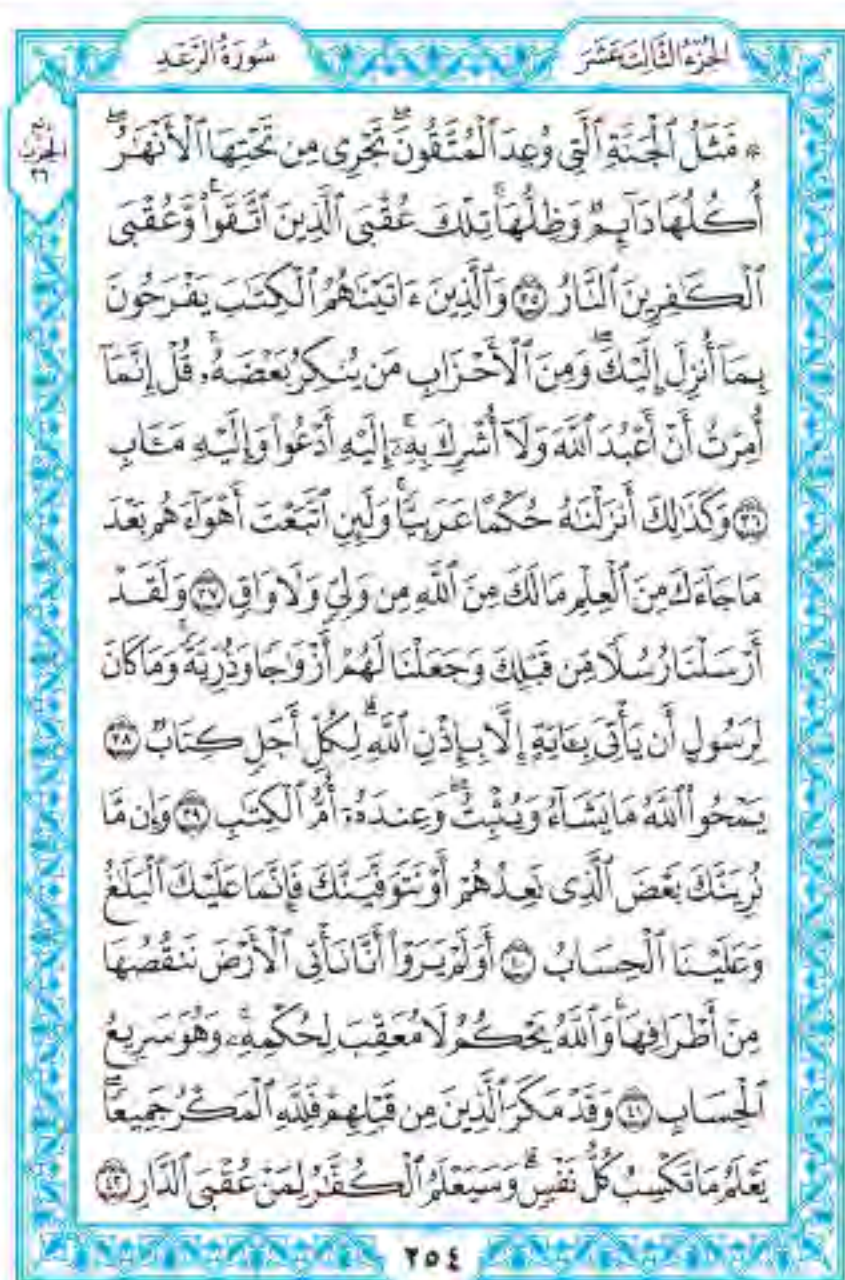 الجزء الثالث عشر
سورة الرعد
ربع
الحزب
٢٦
* مَّثَلُ ٱلْجَنَّةِ ٱلَّتِى وُعِدَ ٱلْمُتَّقُونَۖ تَجْرِى مِن تَحْتِهَا ٱلْأَنْهَٰرُۖ
أُكُلُهَا دَآئِمٌ وَظِلُّهَاۚ تِلْكَ عُقْبَى ٱلَّذِينَ ٱتَّقَوا۟ۖ وَّعُقْبَى
ٱلْكَٰفِرِينَ ٱلنَّارُ ٣٥ وَٱلَّذِينَ ءَاتَيْنَٰهُمُ ٱلْكِتَٰبَ يَفْرَحُونَ
بِمَآ أُنزِلَ إِلَيْكَۖ وَمِنَ ٱلْأَحْزَابِ مَن يُنكِرُ بَعْضَهُۥۚ قُلْ إِنَّمَآ
أُمِرْتُ أَنْ أَعْبُدَ ٱللَّهَ وَلَآ أُشْرِكَ بِهِۦٓۚ إِلَيْهِ أَدْعُوا۟ وَإِلَيْهِ مَـَٔابِ
٣٦ وَكَذَٰلِكَ أَنزَلْنَٰهُ حُكْمًا عَرَبِيًّاۚ وَلَئِنِ ٱتَّبَعْتَ أَهْوَآءَهُم بَعْدَ
مَا جَآءَكَ مِنَ ٱلْعِلْمِ مَا لَكَ مِنَ ٱللَّهِ مِن وَلِىٍّ وَلَا وَاقٍ ٣٧ وَلَقَدْ
أَرْسَلْنَا رُسُلًا مِّن قَبْلِكَ وَجَعَلْنَا لَهُمْ أَزْوَٰجًا وَذُرِّيَّةًۚ وَمَا كَانَ
لِرَسُولٍ أَن يَأْتِىَ بِـَٔايَةٍ إِلَّا بِإِذْنِ ٱللَّهِۗ لِكُلِّ أَجَلٍ كِتَابٌ ٣٨
يَمْحُوا۟ ٱللَّهُ مَا يَشَآءُ وَيُثْبِتُۖ وَعِندَهُۥٓ أُمُّ ٱلْكِتَٰبِ ٣٩ وَإِن مَّا
نُرِيَنَّكَ بَعْضَ ٱلَّذِى نَعِدُهُمْ أَوْ نَتَوَفَّيَنَّكَ فَإِنَّمَا عَلَيْكَ ٱلْبَلَٰغُ
وَعَلَيْنَا ٱلْحِسَابُ ٤٠ أَوَلَمْ يَرَوْا۟ أَنَّا نَأْتِى ٱلْأَرْضَ نَنقُصُهَا
مِنْ أَطْرَافِهَاۚ وَٱللَّهُ يَحْكُمُ لَا مُعَقِّبَ لِحُكْمِهِۦۚ وَهُوَ سَرِيعُ
ٱلْحِسَابِ ٤١ وَقَدْ مَكَرَ ٱلَّذِينَ مِن قَبْلِهِمْ فَلِلَّهِ ٱلْمَكْرُ جَمِيعًاۖ
يَعْلَمُ مَا تَكْسِبُ كُلُّ نَفْسٍۗ وَسَيَعْلَمُ ٱلْكُفَّٰرُ لِمَنْ عُقْبَى ٱلدَّارِ ٤٢
٢٥٤